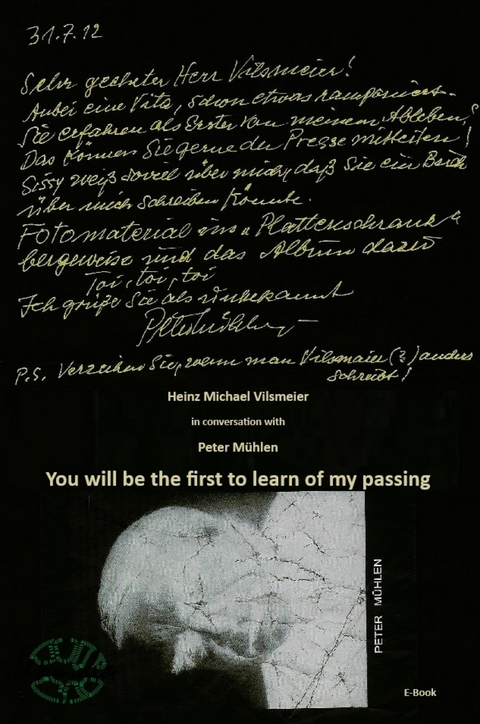 31.7.12
Sehr geehrter Herr Vilsmeier!
Anbei eine Vita, schon etwas ramponiert.
Sie erfahren als Erster von meinem Ableben.
Das können Sie gerne der Presse mitteilen!
Sissy weiß soviel über mich, daß Sie ein Buch
über mich schreiben könnte.
Fotomaterial im "Plattenschrank"
bergeweise und das Album dazu
Toi, toi, toi
Ich grüße Sie als unbekannt
Peter Mühlen
P.S. Verzeihen Sie, wenn man Vilsmaier (?) anders
schreibt!
Heinz Michael Vilsmeier
in conversation with
Peter Mühlen
You will be the first to learn of my passing
PETER MÜHLEN
E-Book